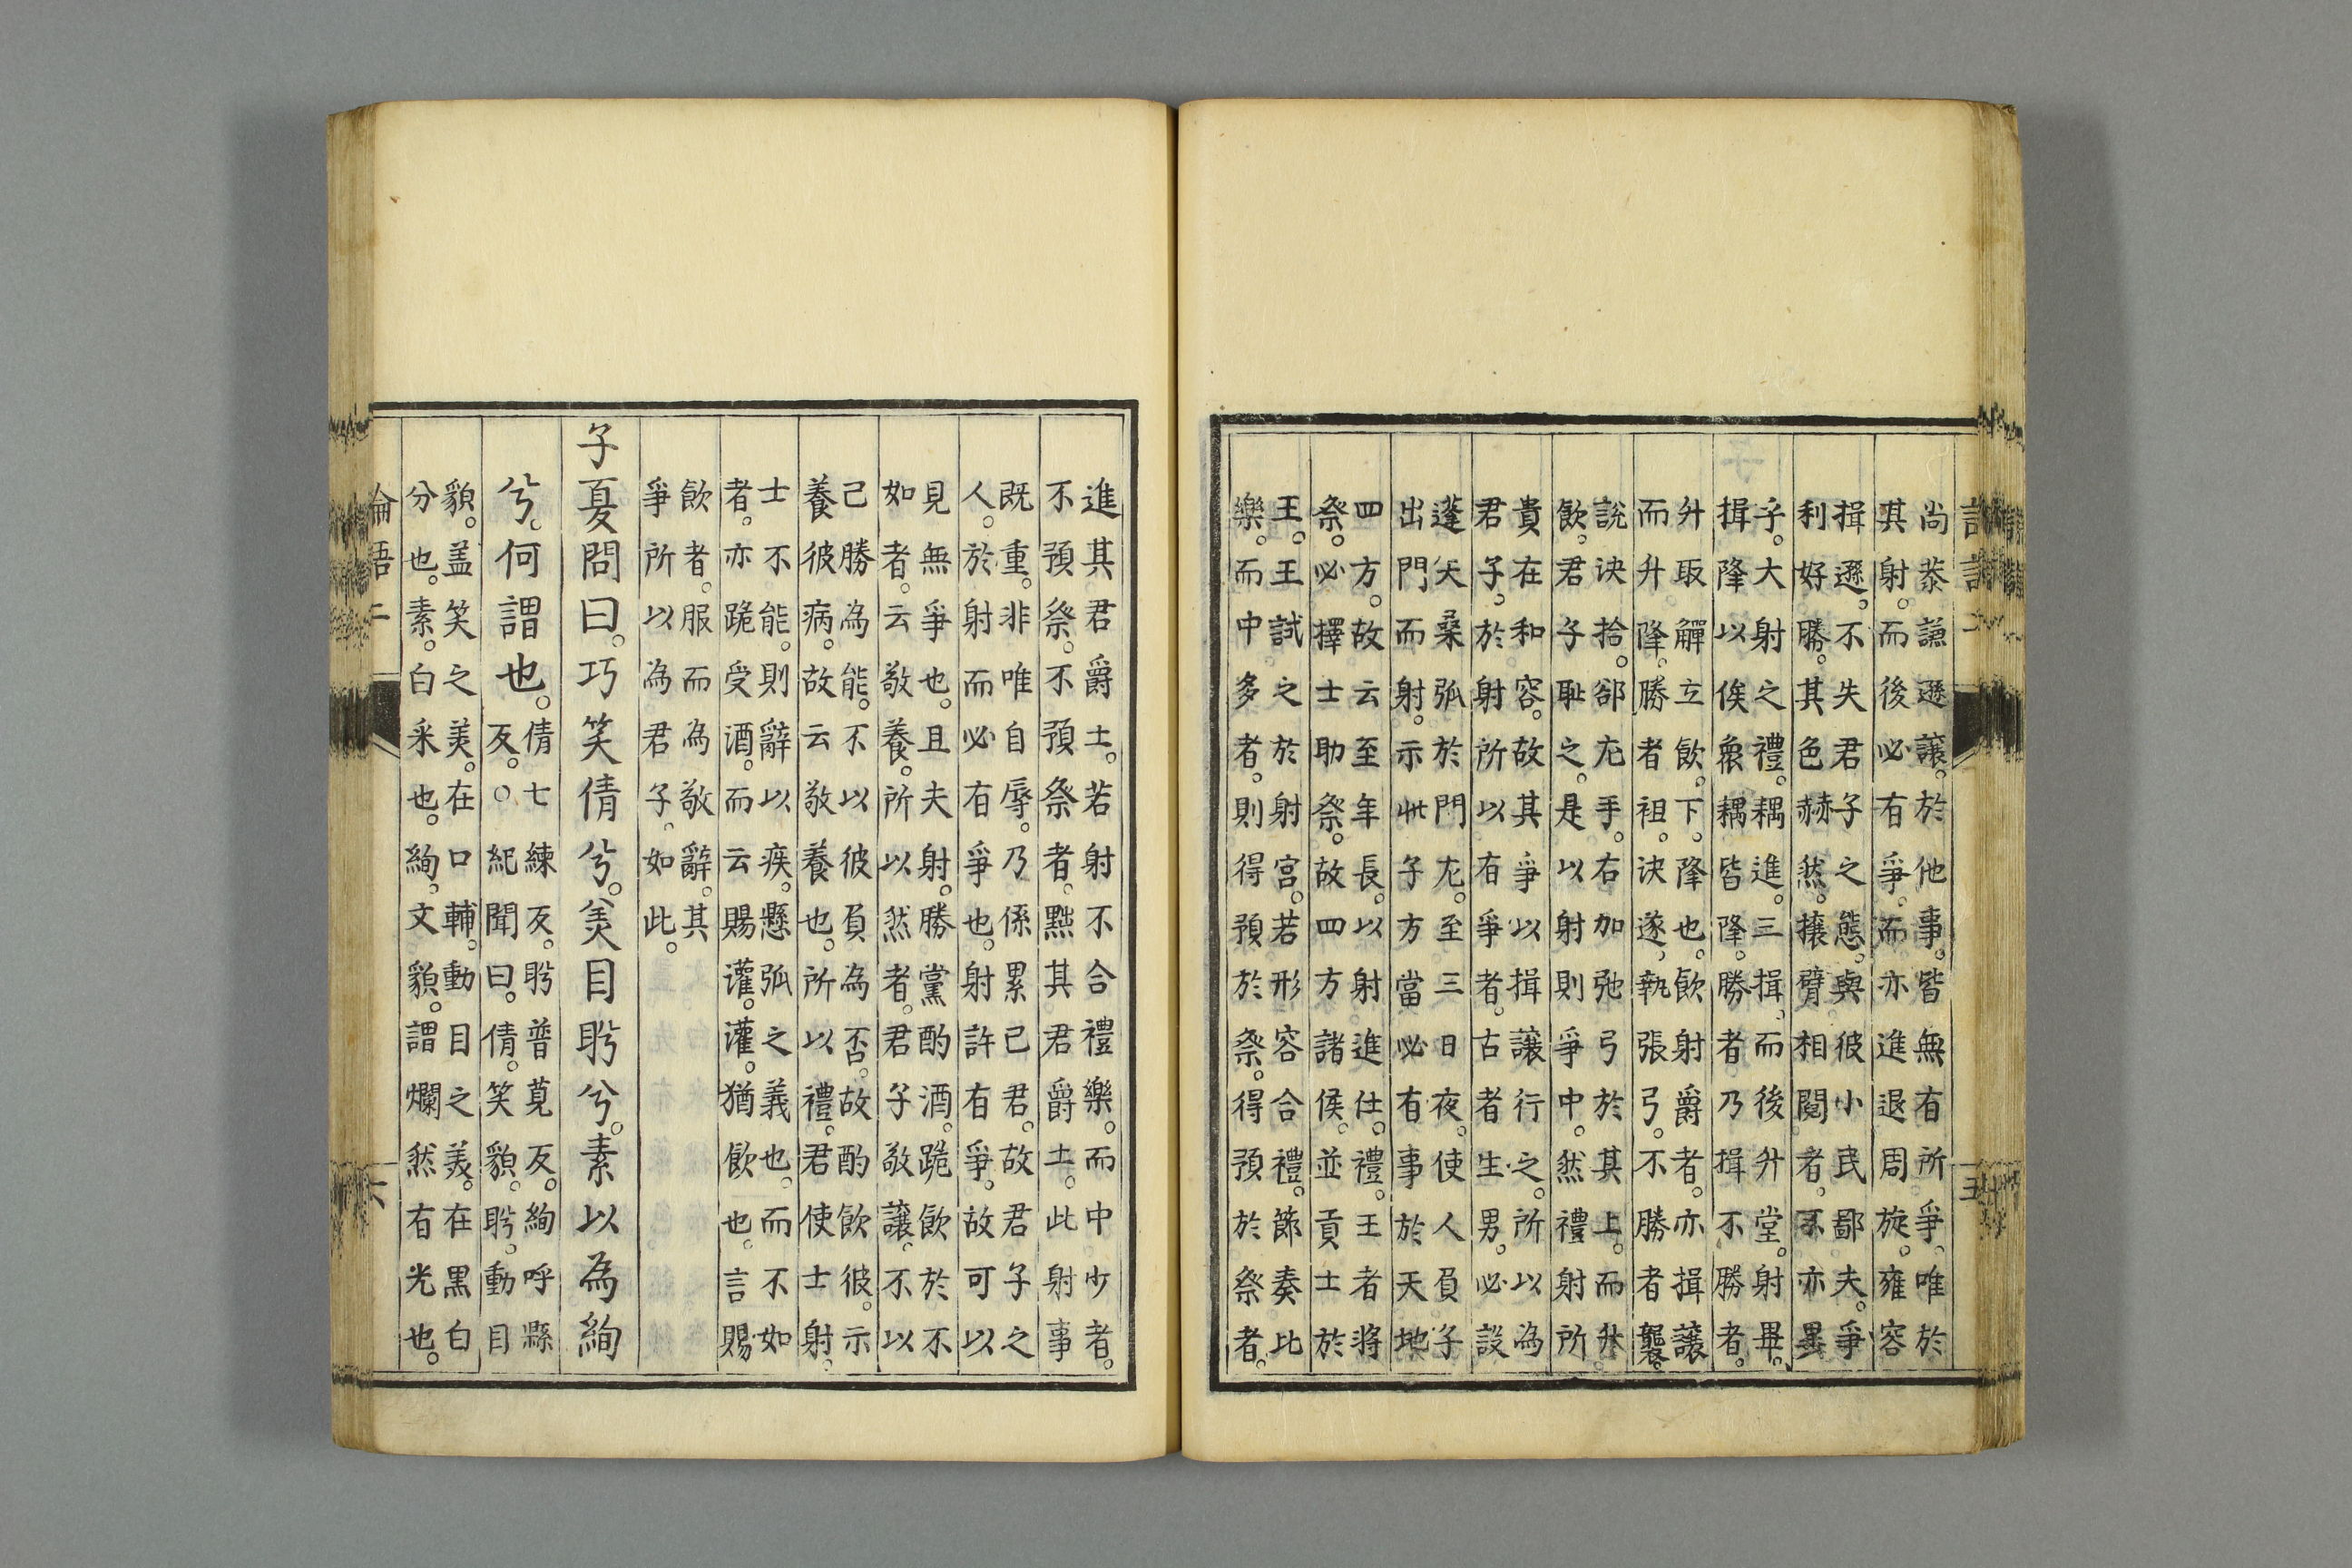 尚恭謙遜讓。於他事。皆無有所爭、唯於
其射。而後必有爭。而亦進退周旋。雍容
揖遜。不失君子之態。與彼小民鄙夫。爭
利好勝。其色赫然。攘臂相鬩者。不亦異
乎。大射之禮。耦進。三揖。而後升堂。射畢。
揖降以俟衆耦皆降。勝者乃揖不勝者。
升取觶立飲。下。降也。飲射爵者。亦揖讓
而升降。勝者袒。決遂、執張弓。不勝者襲。
說決拾。郤左手。右加弛弓於其上。而升
飲。君子恥之。是以射則爭中。然禮射所
貴在和容。故其爭以揖讓行之。所以為
君子。於射所以有爭者。古者生男。必設
蓬矢桑弧於門左。至三日夜。使人負子
出門而射。示此子方當必有事於天地
四方。故云至年長。以射進仕。禮。王者將
祭。必擇士助祭。故四方諸侯。並貢士於
王。王試之於射宮。若形容合禮。節奏比
樂。而中多者。則得預於祭。得預於祭者。
進其君爵土。若射不合禮樂。而中少者。
不預祭。不預祭者。黜其君爵土。此射事
既重。非唯自辱。乃係累己君。故君子之
人。於射而必有爭也。射許有爭。故可以
見無爭也。且夫射。勝黨酌酒。跪飲於不
如者。云敬養。所以然者。君子敬讓。不以
己勝為能。不以彼負為否。故酌飲彼。示
養彼病。故云敬養也。所以禮。君使士射。
士不能。則辭以疾。懸弧之義也。而不如
者。亦跪受酒。而云賜灌。灌。猶飲也。言賜
飲者。服而為敬辭。其
爭所以為君子。如此。
子夏問曰。巧笑倩兮。美目盼兮。素以為絢
兮。何謂也。
倩七練反。盼普莧反。絢呼縣
反。○紀聞曰。倩。笑貌。盼。動目
貌。盖笑之美。在口輔。動目之美。在黒白
分也。素。白采也。絢。文貌。謂爛然有光也。
論語二
六